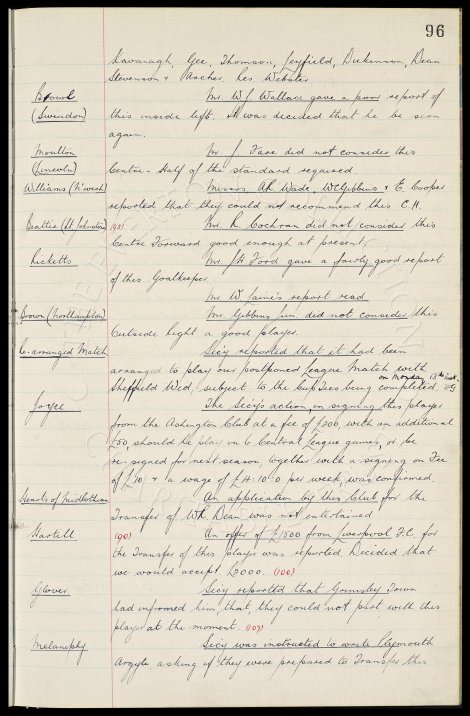 96
Kavanagh, Gee, Thomson, Leyfield, Dickinson, Dean
Stevenson & Archer. Res. Webster
Bowl Mr. W J Wallace gave a poor report of
(Swindon) this inside left. It was decided that he be seen
again.
Moulton Mr J Fare did not consider this
(Lincoln) Centre-Half of the standard required
Williams (N'wich) Messrs. Ah Wade, W C Gibbins & E. Cooper
reported that they could not recommend this C.H.
Beattie (St Johnstone) (93) Mr. R. Cochran did not consider this
Centre Forward good enough at present.
Ricketts Mr J H Ford gave a fairly good report
of this Goalkeeper
Mr. W report read
Brown (Northampton) Mr. Gibbins jun. did not consider this
Outside Right a good player.
Re-arranged Match Secy reported that it had been
arranged to play our postponed League Match with
on Monday 13th Feb.
Sheffield Wed. subject to the Cup Ties being completed.
Joyce The Secy's action in signing this player
from the Ashington Club at a fee of £200, with an additional
£50, should he play in 6 Central League games, or be
re-signed for next season, together with a signing on Fee
of £10 & a wage of £4.10.0 per week, was confirmed
Hearts of Midlothian An application by this Club for the
Transfer of W R. Dean was not entertained
Hartill (90) An offer of £1500 from Liverpool F.C. for
the Transfer of this player was reported. Decided that
we would accept £2000. (100)
Glover Secy reported that Grimsby Town
had informed him that they could not part with this
player at the moment. (107)
Melaniphy Secy was instructed to write Plymouth
Argyle asking if they were prepared to Transfer this